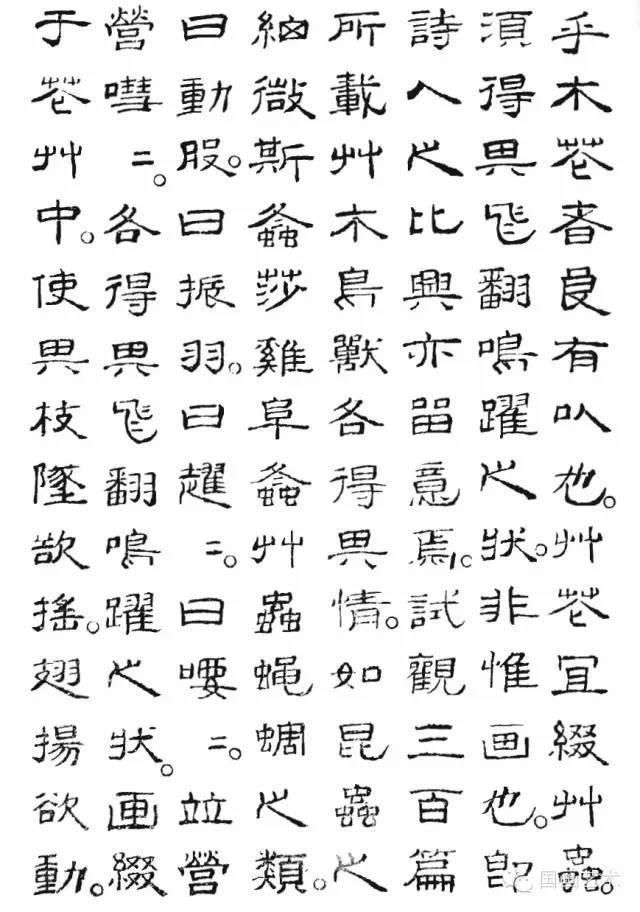 乎木花者良有以也。艸花宜綴艸蟲。
須得其飛翻鳴躍之状。非惟画也。即
詩人之比興亦留意焉。試觀三百篇
所載艸木鳥獸各得其情。如昆蟲之
細微斯螽莎雞阜螽艸蟲蝇蜩之類。
曰動股。曰振羽。曰趯二。曰喓二。竝營
營嘒二。各得其飛翻鳴躍之状。画綴
于花艸中。使其枝墜欲搖。翅揚欲動。
国画艺术